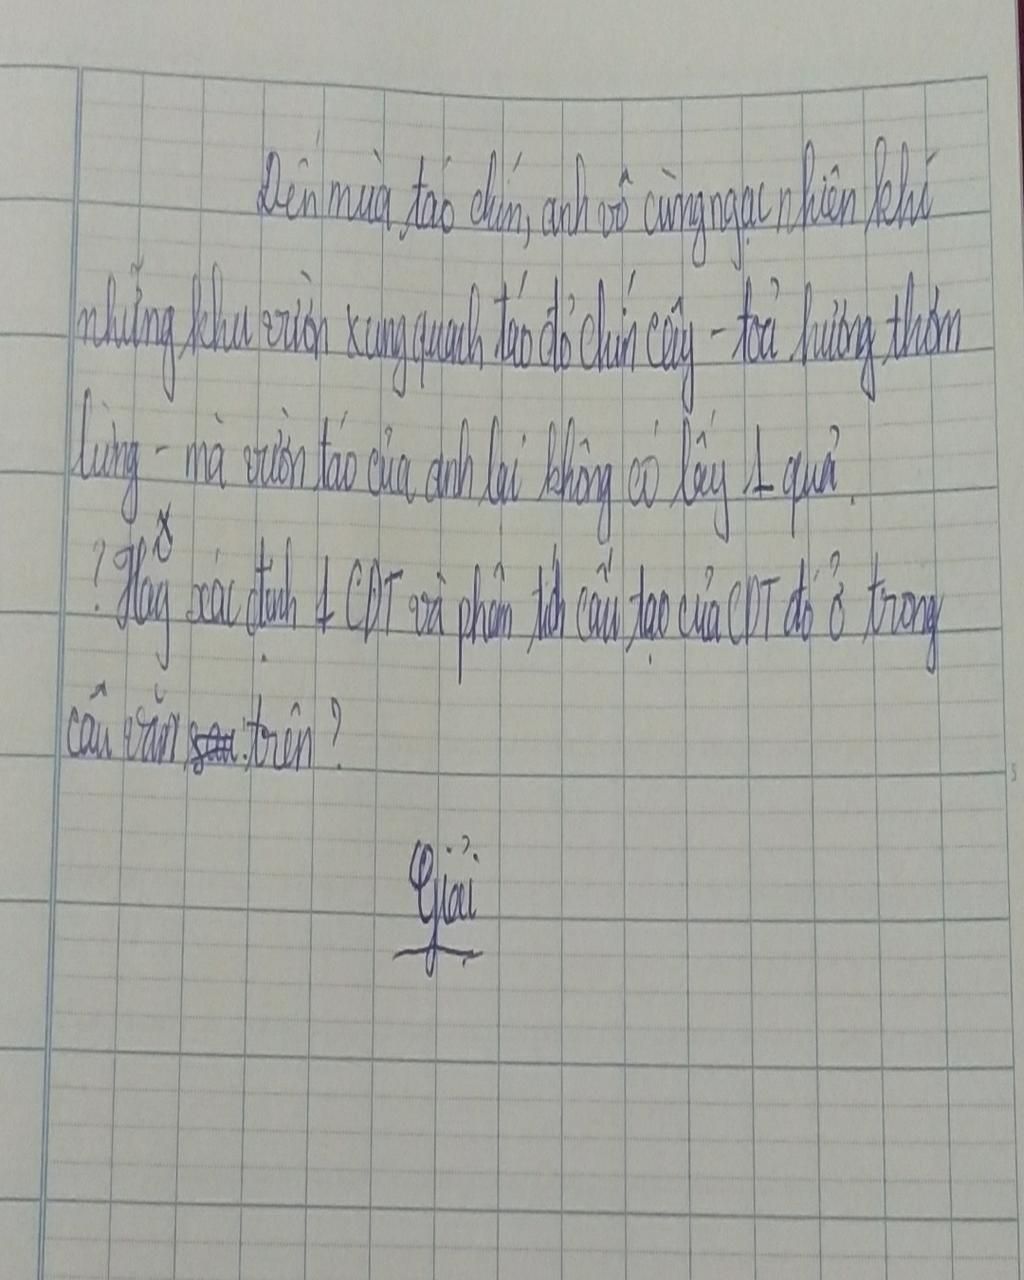 Đến mùa táo chín, anh vô cùng ngạc nhiên khi
những khu vườn xung quanh táo đỏ chín cây - toả hương thơm
lừng - mà vườn táo của anh lại không có lấy 1 quả.
? Hãy xác định 1 CĐT và phân tích cấu tạo của CĐT đó ở trong
câu văn trên?
Giải